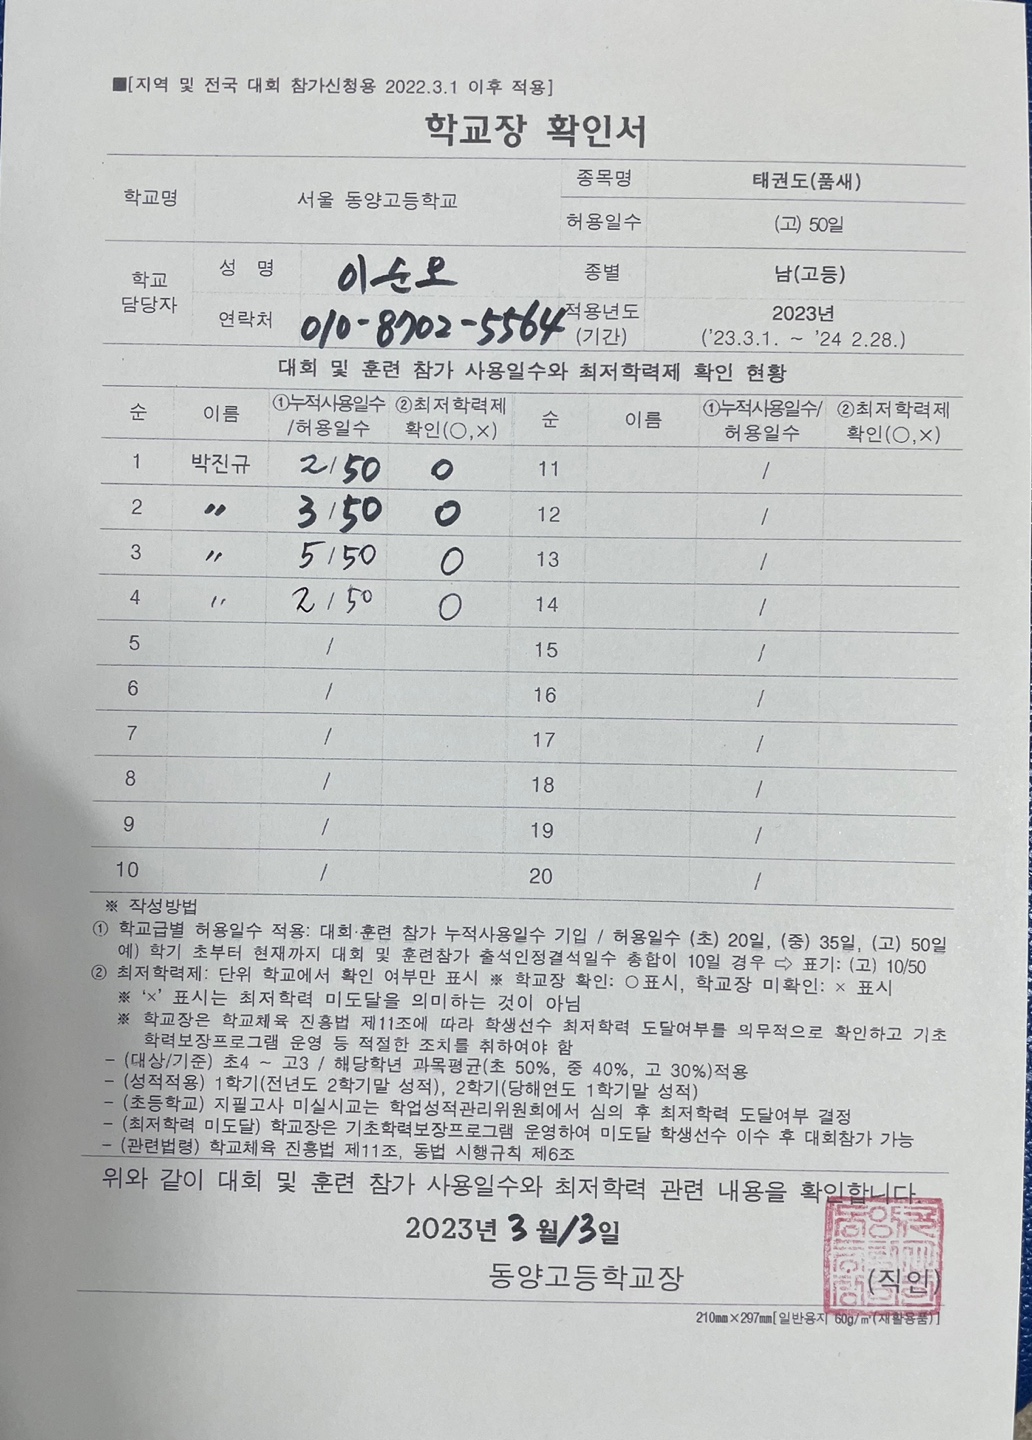 ■[지역 및 전국 대회 참가신청용 2022.3.1 이후 적용]
학교장 확인서
학교명 서울 동양고등학교 종목명 태권도(품새)
허용일수 (고) 50일
학교 담당자 성 명 이순오 종별 남(고등)
연락처 010-8702-5564 적용년도 (기간) 2023년 ('23.3.1. ~ '24 2.28.)
대회 및 훈련 참가 사용일수와 최저학력제 확인 현황
순 이름 ①누적사용일수/허용일수 ②최저학력제 확인(○,×) 순 이름 ①누적사용일수/허용일수 ②최저학력제 확인(○,×)
1 박진규 2/50 ○ 11 /
2 〃 3/50 ○ 12 /
3 〃 5/50 ○ 13 /
4 〃 2/50 ○ 14 /
5 / 15 /
6 / 16 /
7 / 17 /
8 / 18 /
9 / 19 /
10 / 20 /
※ 작성방법
① 학교급별 허용일수 적용: 대회·훈련 참가 누적사용일수 기입 / 허용일수 (초) 20일, (중) 35일, (고) 50일
예) 학기 초부터 현재까지 대회 및 훈련참가 출석인정결석일수 총합이 10일 경우 ⇨ 표기: (고) 10/50
② 최저학력제: 단위 학교에서 확인 여부만 표시 ※ 학교장 확인: ○표시, 학교장 미확인: × 표시
※ '×' 표시는 최저학력 미도달을 의미하는 것이 아님
※ 학교장은 학교체육 진흥법 제11조에 따라 학생선수 최저학력 도달여부를 의무적으로 확인하고 기초
학력보장프로그램 운영 등 적절한 조치를 취하여야 함
- (대상/기준) 초4 ~ 고3 / 해당학년 과목평균(초 50%, 중 40%, 고 30%)적용
- (성적적용) 1학기(전년도 2학기말 성적), 2학기(당해연도 1학기말 성적)
- (초등학교) 지필고사 미실시교는 학업성적관리위원회에서 심의 후 최저학력 도달여부 결정
- (최저학력 미도달) 학교장은 기초학력보장프로그램 운영하여 미도달 학생선수 이수 후 대회참가 가능
- (관련법령) 학교체육 진흥법 제11조, 동법 시행규칙 제6조
위와 같이 대회 및 훈련 참가 사용일수와 최저학력 관련 내용을 확인합니다.
2023년 3월 13일
동양고등학교장 (직인)
210㎜×297㎜[일반용지 60g/㎡(재활용품)]